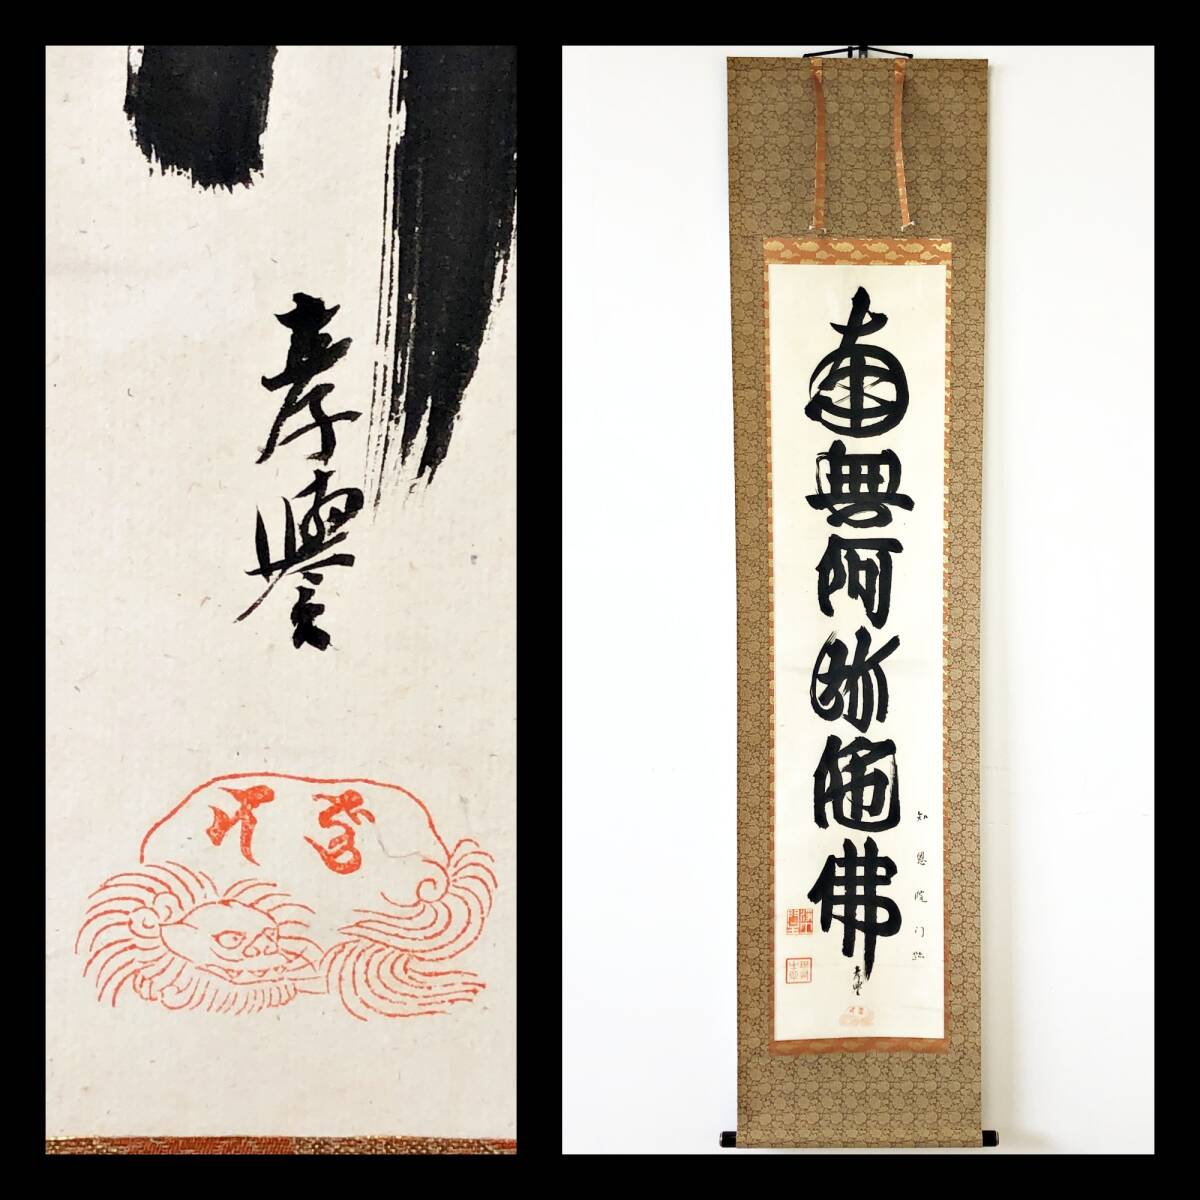 孝譽
南無阿弥陀佛
知恩院门跡
孝譽